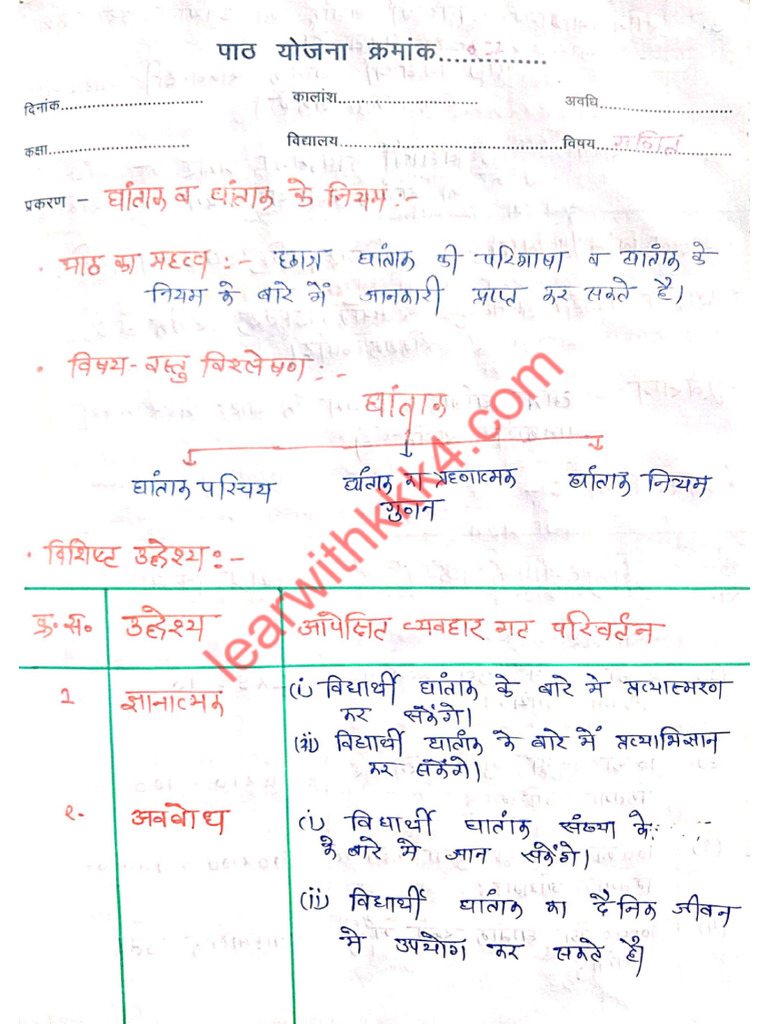 पाठ योजना क्रमांक..............
दिनांक.............................. कालांश.............................. अवधि..............................
कक्षा.............................. विद्यालय..............................विषय.. गणित
प्रकरण - घांताक व घांताक के नियम :-
• पाठ का महत्व :- छात्र घांताक की परिभाषा व घातांक के
नियम के बारे में जानकारी प्राप्त कर सकते है।
• विषय-वस्तु विश्लेषण :-
घांताक
घांताक परिचय घांताक का ऋणात्मक घांताक नियम
गुणन
• विशिष्ट उद्देश्य :-
क्र.स. उद्देश्य आपेक्षित व्यवहार गट परिवर्तन
1 ज्ञानात्मक (i) विधार्थी घांताक के बारे मे प्रत्यास्मरण
कर सकेंगे।
(ii) विधार्थी घातांक के बारे में प्रत्याभिज्ञान
कर सकेंगे।
२. अवबोध (i) विधार्थी घातांक संख्या के
के बारे मे जान सकेंगे।
(ii) विधार्थी घातांक का दैनिक जीवन
मे उपयोग कर सकते हैं।
learwithkkk4.com